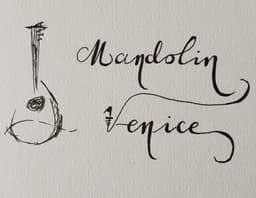 Mandolin
Venice